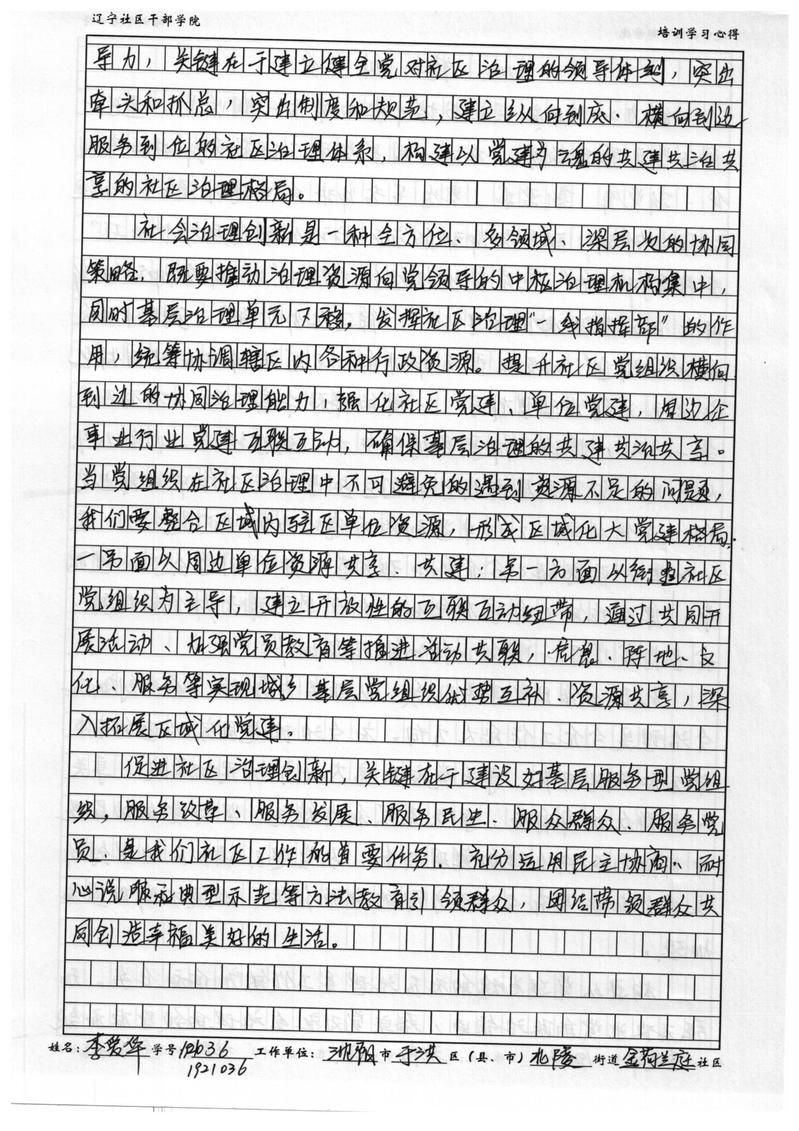 辽宁社区干部学院
培训学习心得
导力，关键在于建立健全党对社区治理的领导体制，突出
牵头和抓总，突出制度和规范，建立纵向到底、横向到边
服务到位的社区治理体系，构建以党建为魂的共建共治共
享的社区治理格局。
社会治理创新是一种全方位、多领域、深层次的协同
策略。既要推动治理资源向党领导的中枢治理机构集中，
同时基层治理单元下移，发挥社区治理“一线指挥部”的作
用，统筹协调辖区内各种行政资源。提升社区党组织横向
到边的协同治理能力，强化社区党建、单位党建，周边企
事业行业党建互联互动，确保基层治理的共建共治共享。
当党组织在社区治理中不可避免的遇到资源不足的问题，
我们要整合区域内驻区单位资源，形成区域化大党建格局，
一方面以周边单位资源共享、共建；另一方面以街道社区
党组织为主导，建立开放性的互联互动纽带，通过共同开
展活动、加强党员教育等推进活动共联，信息、阵地、文
化、服务等实现城乡基层党组织优势互补、资源共享，深
入拓展区域化党建。
促进社区治理创新，关键在于建设好基层服务型党组
织，服务改革、服务发展、服务民生、服众群众、服务党
员，是我们社区工作的首要任务，充分运用民主协商、耐
心说服和典型示范等方法教育引领群众，团结带领群众共
同创造幸福美好的生活。
姓名：李爱华 学号 192636 工作单位：沈阳市于洪区（县、市）北陵街道金荷兰庭社区
1921036